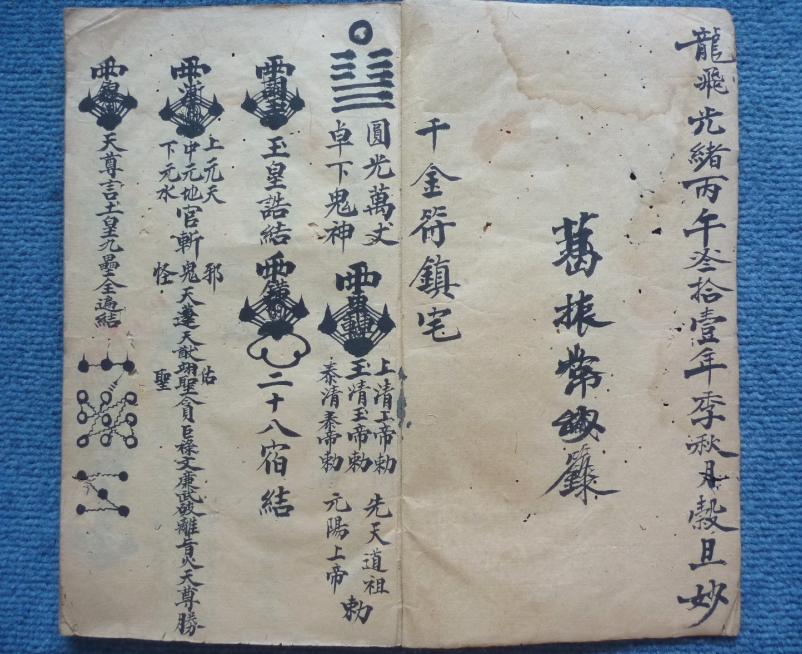 龍飛光緒丙午叁拾壹年季秋月穀旦妙
葛振常
千金符鎮宅
圓光萬丈
卓下鬼神
上清玉帝勅
玉清玉帝勅
泰清泰帝勅
先天道祖
元陽上帝
勅
玉皇誥結
二十八宿結
上元天
中元地
下元水
官斬
邪
鬼
怪
天蓬天猷翊聖
佑
聖
貪巨祿文廉武破離
火天尊勝
天尊言土皇九壘全遍結